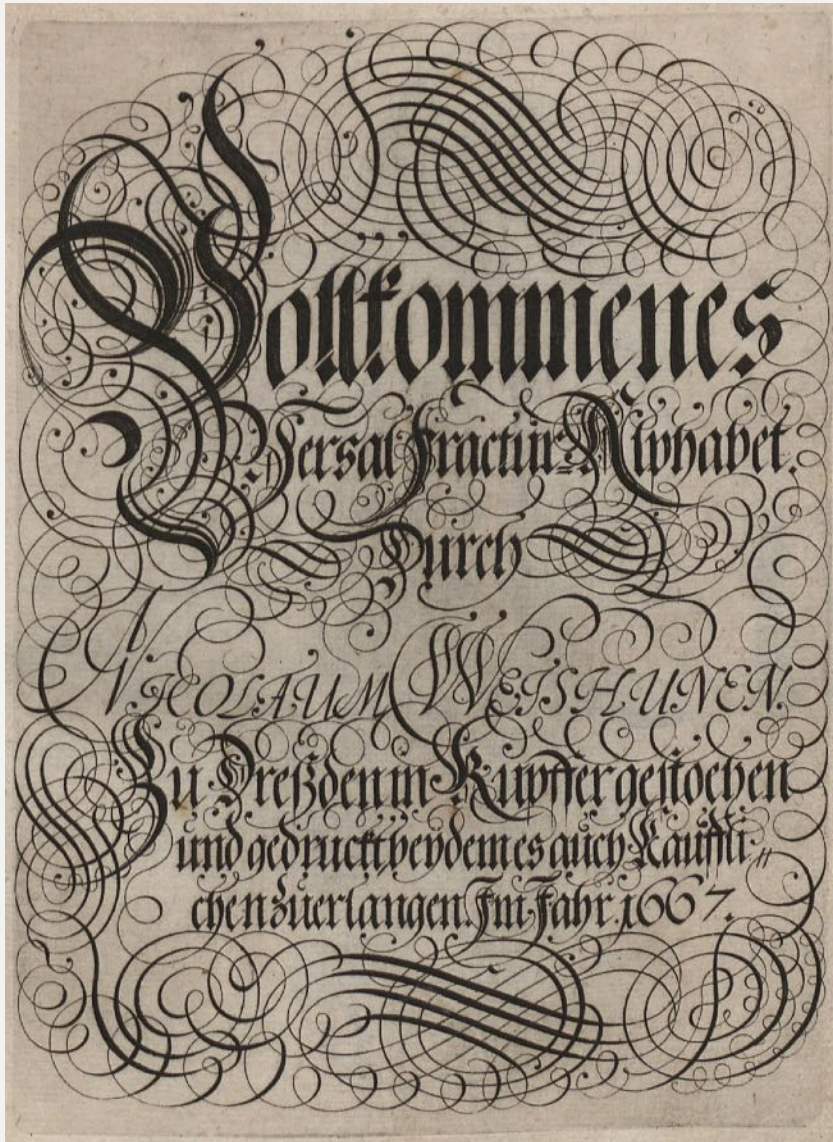 Vollkommenes
Versal Fractur-Alphabet.
Durch
NICOLAUM WEISHUNEN.
Zu Dreßden in Kupffer gestochen
und gedruckt bey dem es auch Kauffli„
chen zuerlangen. Im Jahr. 1667.